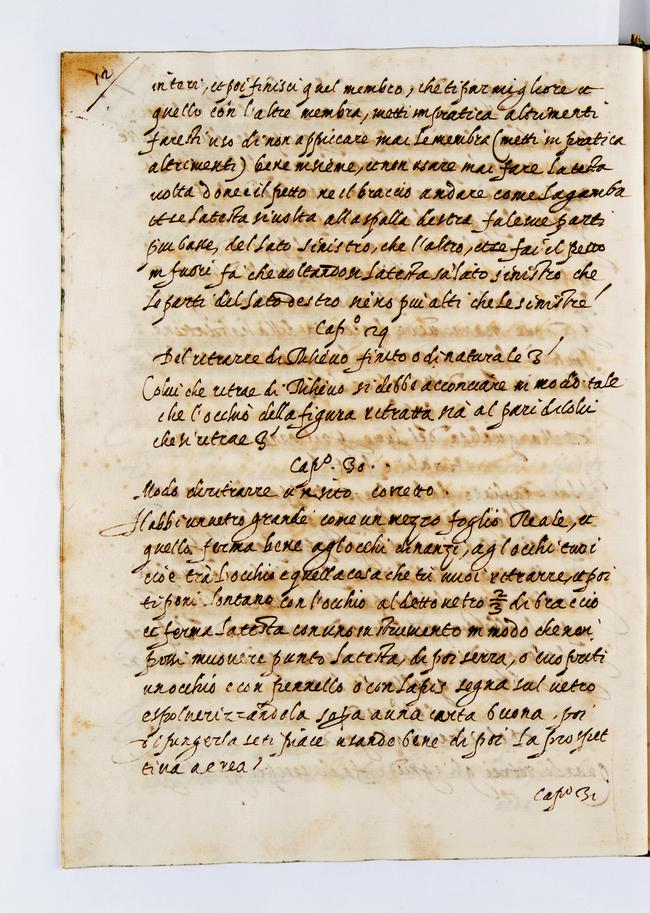 12
interi, et poi finisci quel membro, che ti par migliore et
quello con l'altre membra, metti in pratica altrimenti
faresti uso di non appiccare mai le membra (metti in pratica
altrimenti) bene insieme, et non usare mai fare la testa
volta done è il petto ne il braccio andare come la gamba
et se la testa si volta alla spalla destra fa le sue parti
piu basse, del lato sinistro, che l'altro, et se fai il petto
in fuori fa che voltandosi la testa sul lato sinistro che
le parti del lato destro sieno piu alti che le sinistre
Cap.º 29
Del ritrarre di Rilievo finito o di naturale
Colui che ritrae di Rilievo si debbe acconciare in modo tale
che l'occhio della figura ritratta sia al pari di colui
che si ritrae
Cap.º 30.
Modo di ritrarre un sito corretto
Habbi un vetro grande come un mezzo foglio Reale, et
quello ferma bene a gl'occhi dinanzi, a gl'occhi tuoi
cioè trà l'occhio e quella cosa che tu vuoi ritrarre, et poi
ti poni lontano con l'occhio al detto vetro 2/3 di braccio
et ferma la testa con uno instrumento in modo che non
possi muovere punto la testa, di poi serra, o cuopriti
un occhio e con pennello o con lapis segna sul vetro
e spolverizzandola sopra a una carta buona, poi
dipingerla se ti piace usando bene di poi la prospet
tiva aerea
Cap.º 31